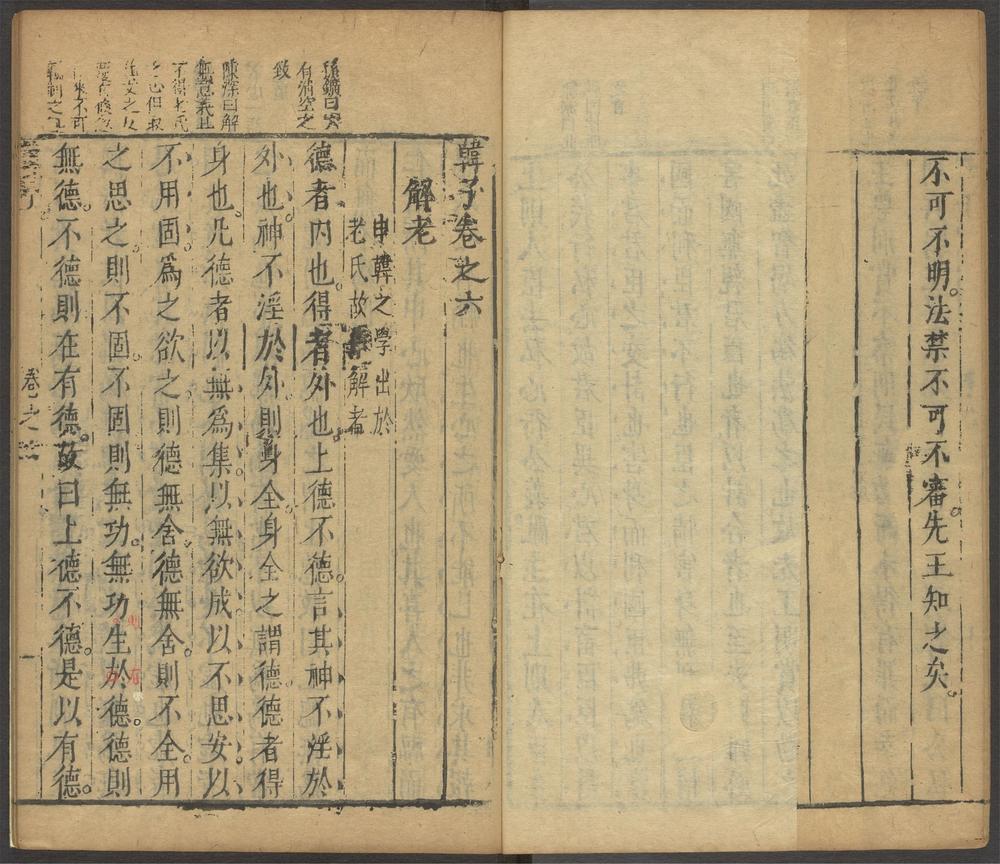 不可不明法禁不可不審先王知之矣
韓子卷之六
解老
申韓之學出於
老氏故 解者
德者內也得者外也上德不德言其神不淫於
外也神不淫於外則身全身全之謂德德者得
身也凡德者以無爲集以無欲成以不思安以
不用固爲之欲之則德無舍德無舍則不全用
之思之則不固不固則無功無功生於德德則
無德不德則在有德故曰上德不德是以有德
孫鑛曰
有 空之
致
陳深曰解
卷之六
一